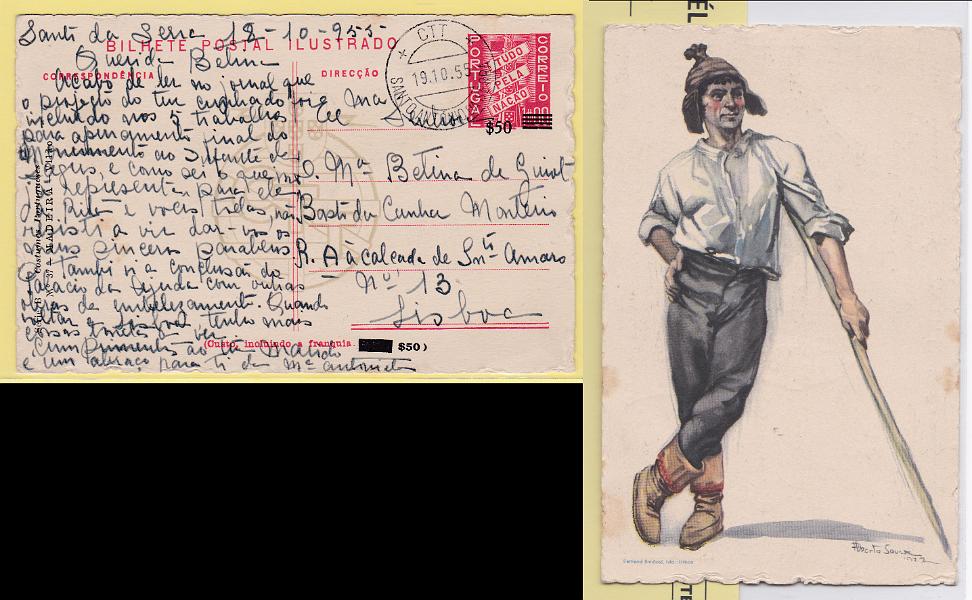 Santo da Serra 18-10-955
BILHETE POSTAL ILUSTRADO
Querida Betina
CORRESPONDÊNCIA
DIRECÇÃO
Acabo de ler no jornal que
o projecto do teu cunhado foi
incluído nos 5 trabalhos
para apuramento final do
Monumento ao Infante de
Sagres, e como sei o que
representa para ele
e vocês todos, não
resisti a vir dar-vos os
meus sinceros parabens
Tambem vi a conclusão do
Palácio da Ajuda com outras
obras de embelezamento. Quando
voltar a tenho mais
coisas ver.
Cumprimentos ao teu Marido
e um abraço para ti da Mª Antonieta
Nº 37 - MADEIRA - Vilão
Costumes Portugueses
CTT
19.10.55
SANTO ANTÓNIO DA SERRA
PORTUGAL
CORREIO
TUDO
PELA
NAÇÃO
1$00
$50
Ex Ma Senhora
D. Mª Betina de
Basto da Cunha Monteiro
R. A à calçada de Stº Amaro
Nº 13
Lisboa
(Custo, incluindo a franquia $50)
Alberto Souza
Bertrand (Irmãos), Lda.-Lisboa
ÉL
TE